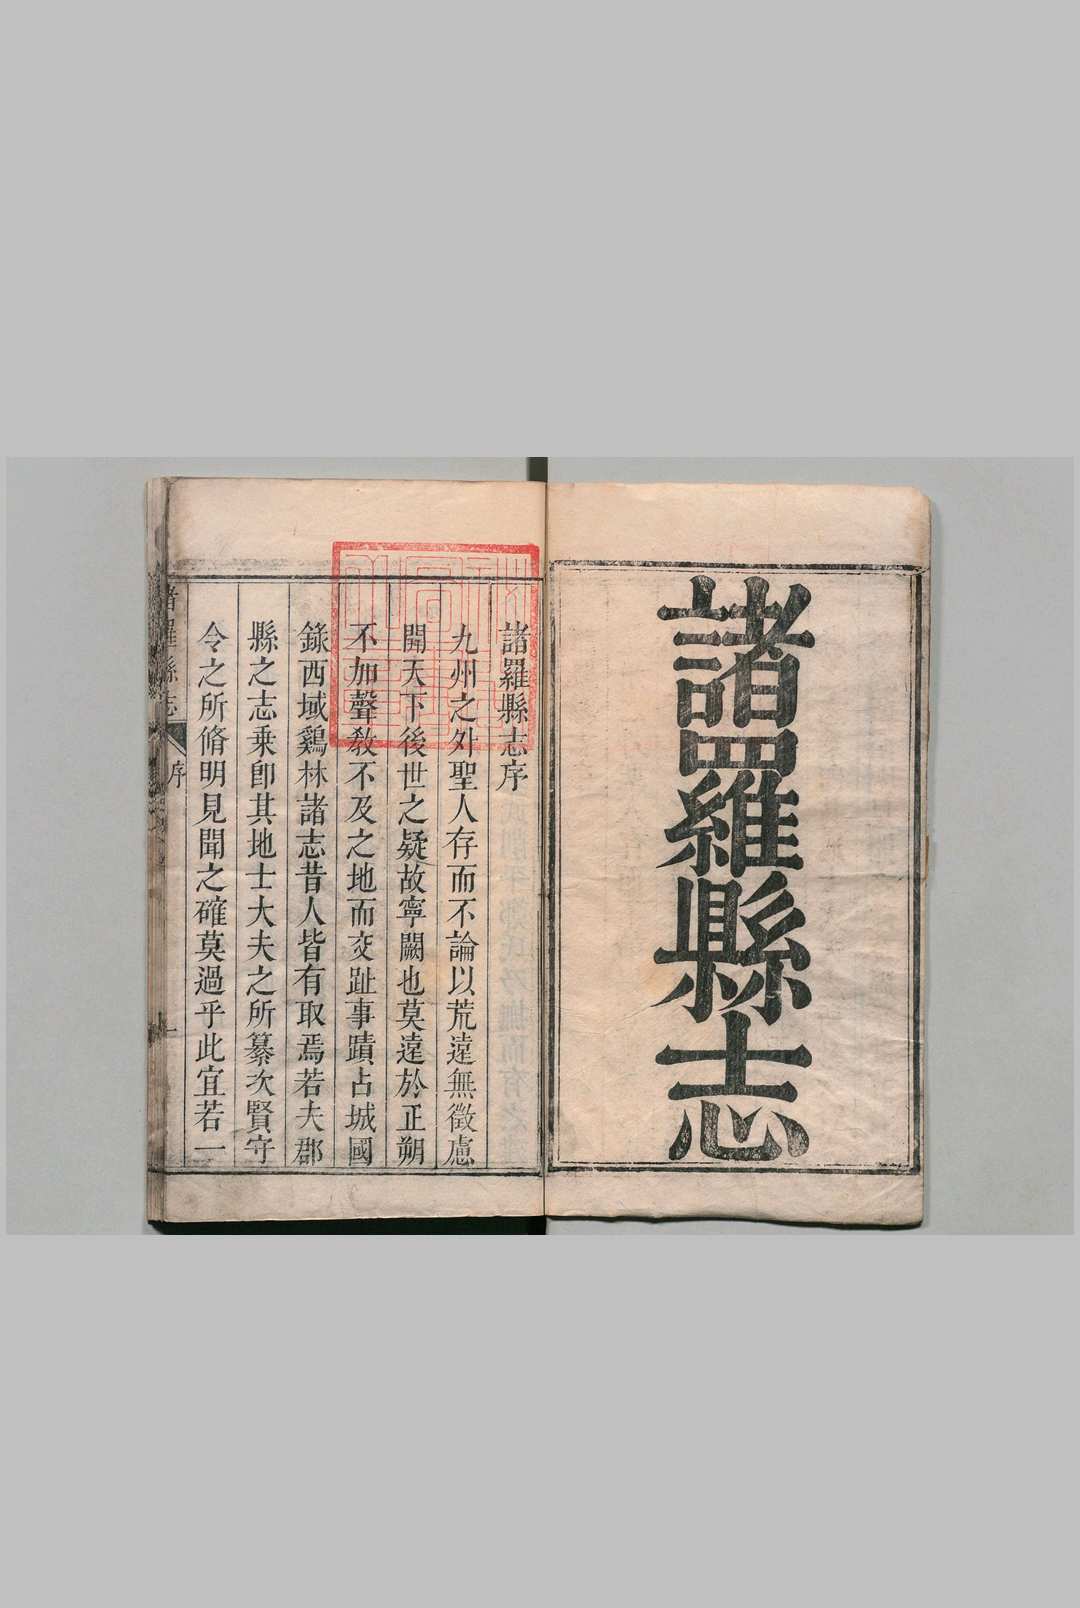 諸羅縣志
諸羅縣志序
九州之外聖人存而不論以荒遠無徵慮
開天下後世之疑故寧闕也莫遠於正朔
不加聲敎不及之地而交趾事蹟占城國
錄西域鷄林諸志昔人皆有取焉若夫郡
縣之志乘卽其地士大夫之所纂次賢守
令之所脩明見聞之確莫過乎此宜若一
諸羅縣志 序 一